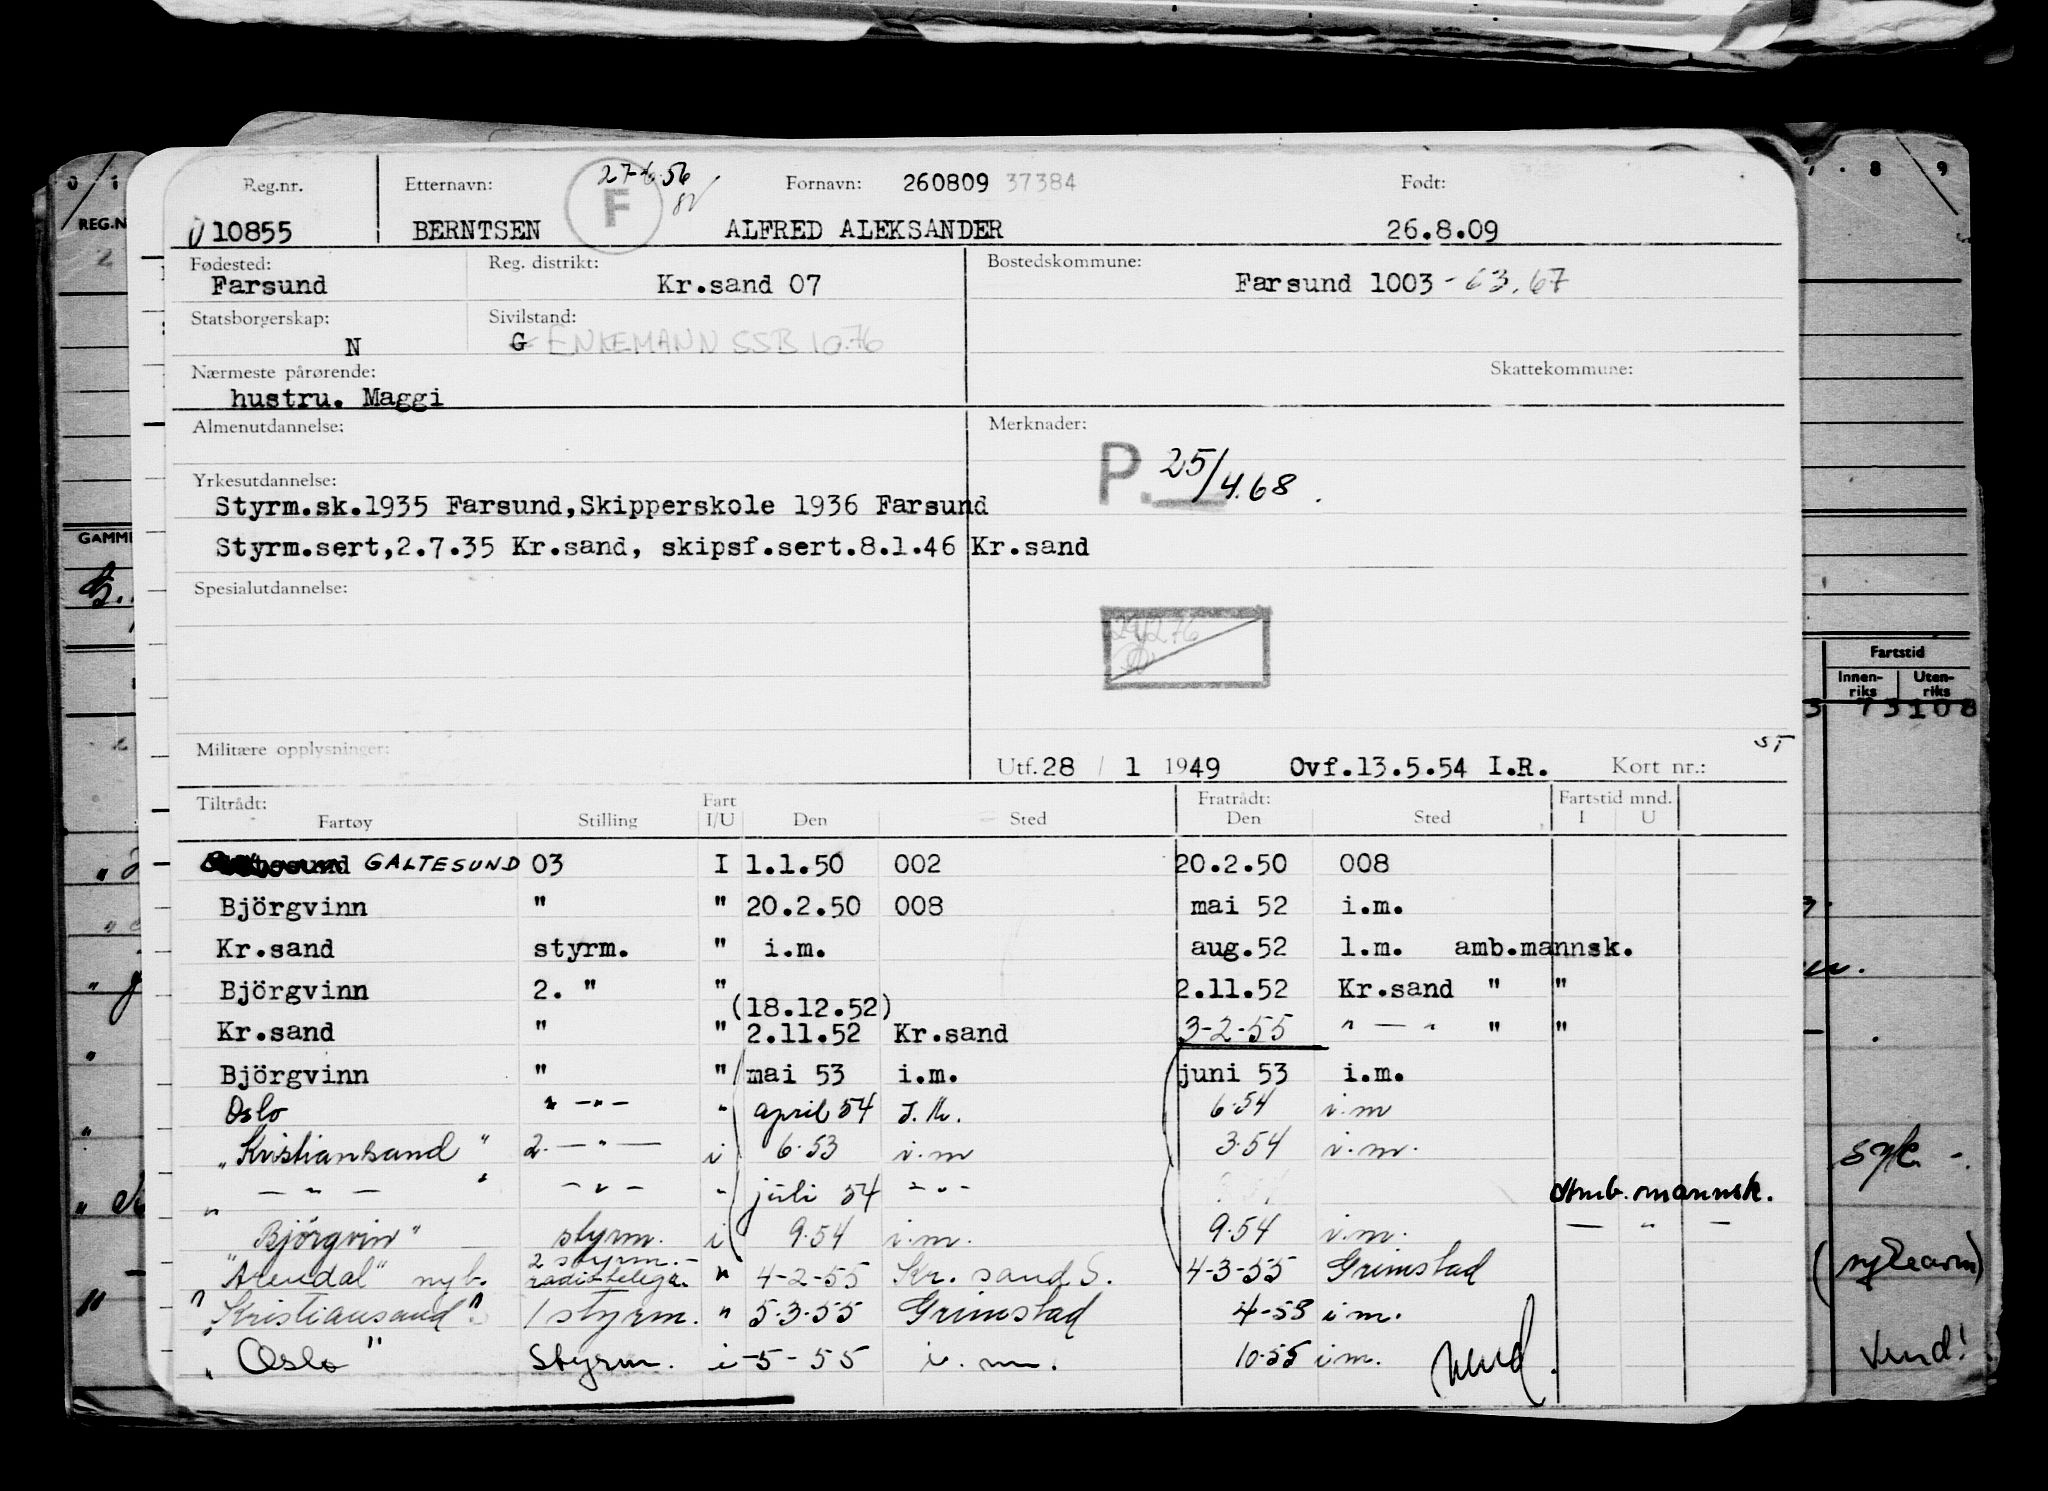 27-6-56
Reg.nr. Etternavn: F Fornavn: 260809 37384 Født:
010855 BERNTSEN ALFRED ALEKSANDER 26.8.09
Fødested: Reg. distrikt: Bostedskommune:
Farsund Kr.sand 07 Farsund 1003 - 63.67
Statsborgerskap: Sivilstand:
N G ENKEMANN SSB 10.76
Nærmeste pårørende: Skattekommune:
hustru. Maggi
Almenutdannelse: Merknader:
P. 25/4.68.
Yrkesutdannelse:
Styrm.sk.1935 Farsund,Skipperskole 1936 Farsund
Styrm.sert,2.7.35 Kr.sand, skipsf.sert.8.1.46 Kr.sand
Spesialutdannelse:
Militære opplysninger: ST
Utf.28 / 1 1949 Ovf.13.5.54 I.R. Kort nr.:
Tiltrådt: Fart Fratrådt: Fartstid mnd.
Fartøy Stilling I/U Den Sted Den Sted I U
GALTESUND 03 I 1.1.50 002 20.2.50 008
Björgvinn " " 20.2.50 008 mai 52 i.m.
Kr.sand styrm. " i.m. aug.52 l.m. amb.mannsk.
Björgvinn 2. " " 2.11.52 Kr.sand " "
(18.12.52)
Kr.sand " " 2.11.52 Kr.sand 3-2-55 " — " " "
Björgvinn " " mai 53 i.m. juni 53 i.m.
Oslo " —"— " april 54 6.54 i.m
"Kristiansand" 2. — " — i 6.53 i.m 3.54 i.m.
" — " — " — " — " juli 54 - " - Amb. mannsk.
Björgvin" styrm. i 9.54 i.m. 9.54 i.m. — " —
"Arendal" nyb. 2 styrm.- radiotelegr. " 4-2-55 Kr. sand S. 4-3-55 Grimstad
"Kristiansand" 1 styrm. " 5.3.55 Grimstad 4-53 i m.
"Oslo" Styrm. i -5-55 i. m. 10.55 i m. vend.
REG.N
GAMME
Fartstid
Innen-riks Uten-riks
73108
syk -.
vend!